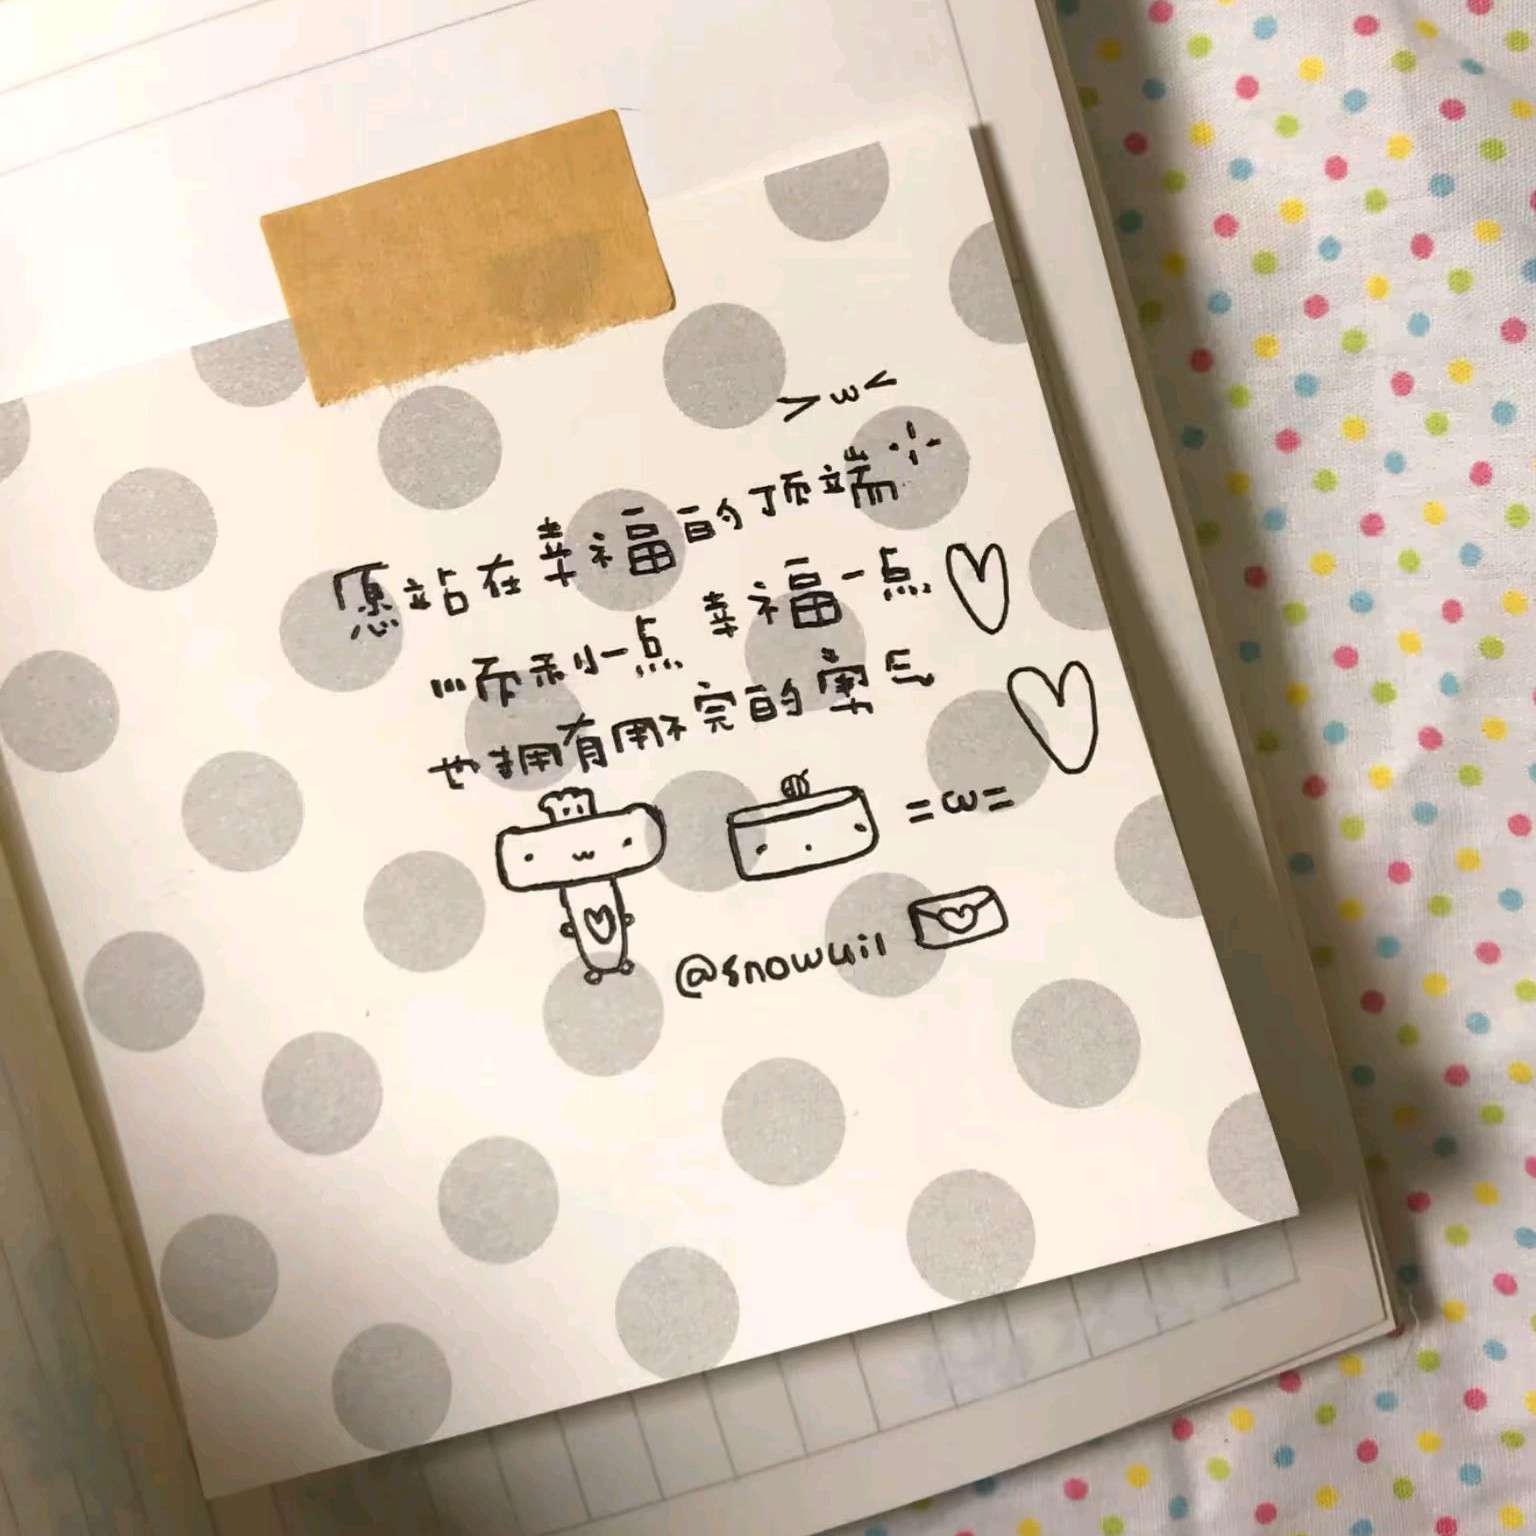 >w<
愿站在幸福的顶端
顺利一点 幸福一点
也拥有用不完的气
=ω=
@snowuil